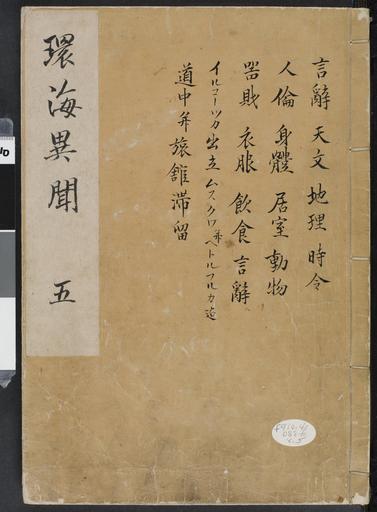 言辭 天文 地理 時令
人倫 身體 居室 動物
器財 衣服 飲食 言辭
イルコーツカ出立ムスクワ并ペトルブルカ迄
道中并旅舘滞留
環海異聞 五